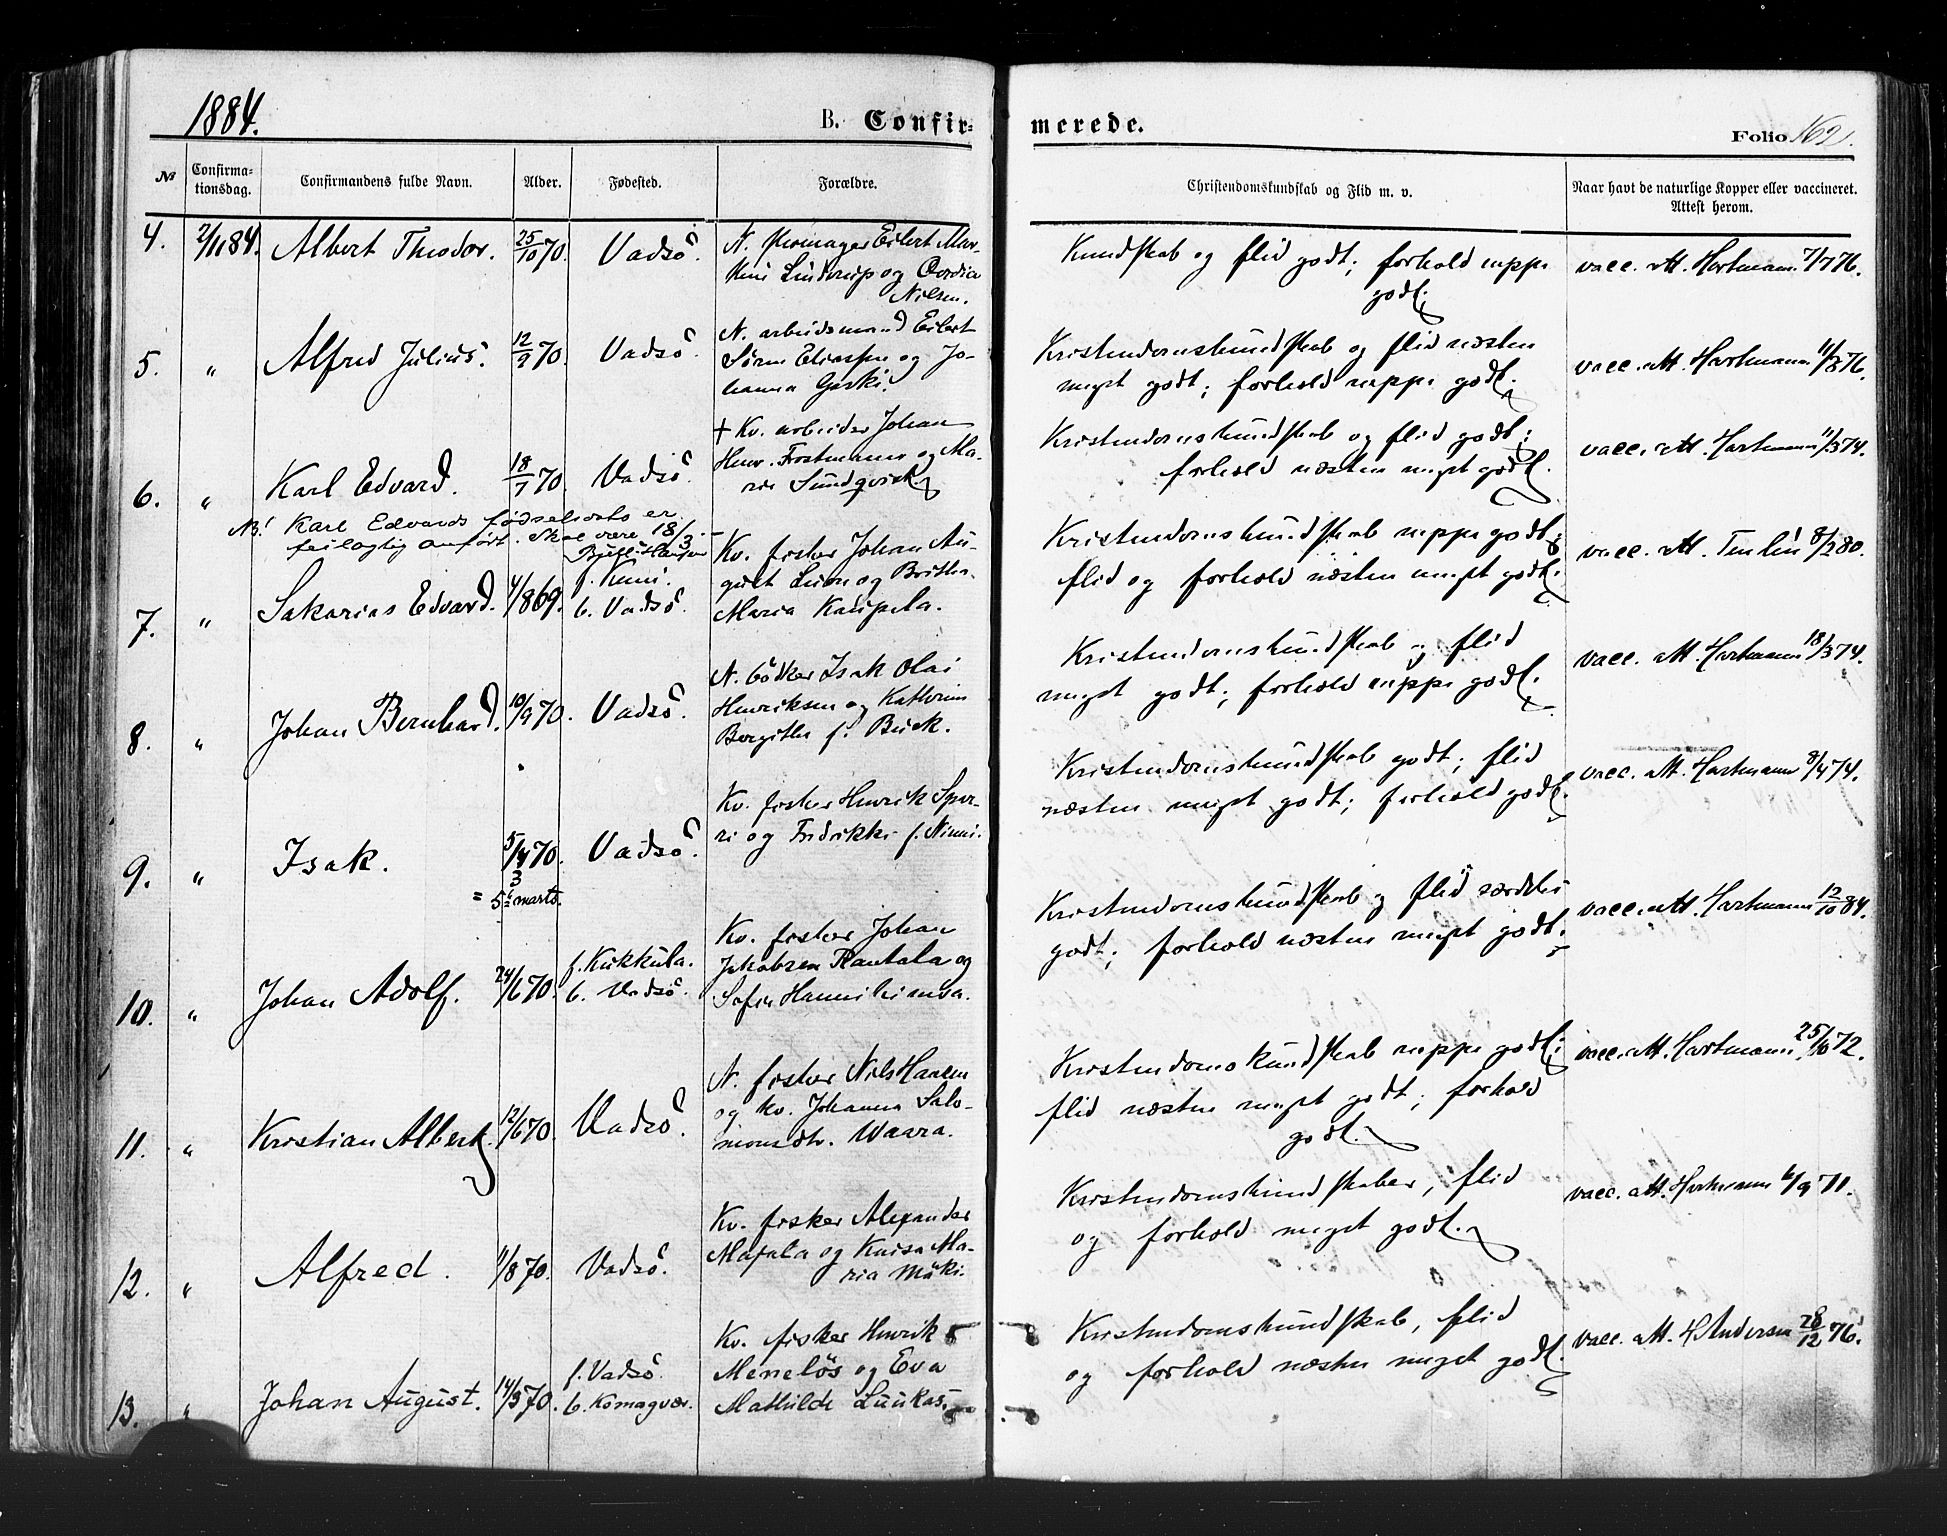 1884.
B. Confir-
merede.
Folio 162.
№
Confirma-
tionsdag.
Confirmandens fulde Navn.
Alder.
Fødested.
Forældre.
Christendomskundskab og Flid m. v.
Naar havt de naturlige Kopper eller vaccineret.
Attest herom.
4. 2/11 84. Albert Theodor. 25/10 70. Vadsö.
N. Eilert Mar-
kus Linderup og
Nilsen.
Kundskab og flid godt; forhold neppe
godt.
vacc. att. Hartmann 7/7 76.
5. " Alfred Julius. 12/9 70. Vadsö.
N. arbeidsmand Eilert
Sören og Jo-
hanna
Kristendomskundskab og flid næsten
meget godt; forhold neppe godt.
vacc. att. Hartmann 11/8 76.
6. " Karl Edvard. 18/7 70. Vadsö.
+ Kv. arbeider Johan
Henr. Frostmann og Ma-
ria Sundqvist
Kristendomskundskab og flid godt;
forhold næsten meget godt.
vacc. att. Hartmann 11/3 74.
NB! Karl Edvards fødselsdato er
feilagtig anført. Skal være 18/3.
7. " Sakarias Edvard. 4/8 69. f. Kemi.
b. Vadsö.
Kv. fisker Johan Au-
gust og
Maria Kaupela.
Kristendomskundskab neppe godt;
flid og forhold næsten meget godt.
vacc. att. 8/2 80.
8. " Johan Bernhard. 10/9 70. Vadsö.
N. bödker Isak Olai
Henriksen og Kathrine
Bergithe f. Buck.
Kristendomskundskab og flid
meget godt; forhold neppe godt.
vacc. att. Hartmann 18/3 74.
9. " Isak. 5/4 70. Vadsö.
3
= 5te marts.
Kv. fisker Henrik
og Fredrikke f. Niemi.
Kristendomskundskab godt; flid
næsten meget godt; forhold godt.
vacc. att. Hartmann 8/4 74.
10. " Johan Adolf. 24/6 70. f. Kukkula.
b. Vadsö.
Kv. fisker Johan
Jakobsen Rantala og
Sofie
Kristendomskundskab og flid særdeles
godt; forhold næsten meget godt.
vacc. att. Hartmann 12/10 84.
11. " Kristian Albert. 12/6 70. Vadsö.
N. fisker Nils Hansen
og kv. Johanna Salo-
monsdtr. Waara.
Kristendomskundskab neppe godt;
flid næsten meget godt; forhold
godt.
vacc. att. Hartmann 25/10 72.
12. " Alfred. 11/8 70. Vadsö.
Kv. fisker Alexander
Majala og Kaisa Ma-
ria Mäki.
Kristendomskundskaber, flid
og forhold meget godt.
vacc. att. Hartmann 6/9 71.
13. " Johan August. 14/3 70. f. Vadsö.
b. Komagvær.
Kv. fisker Henrik
Meneløs og Eva
Mathilde Luukas.
Kristendomskundskab, flid
og forhold næsten meget godt.
vacc. att. H Andersen 28/12 76.